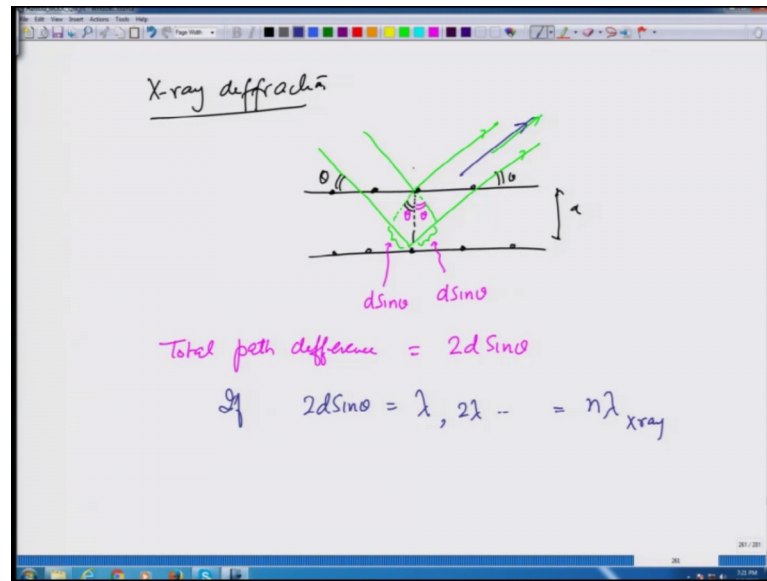 File Edit View Insert Actions Tools Help
Page Width
X-ray diffraction
θ θ
θ θ
a
dSinθ dSinθ
Total path difference = 2d Sinθ
If 2dSinθ = λ, 2λ -- = nλ xray
281 / 281
282
7:21 PM